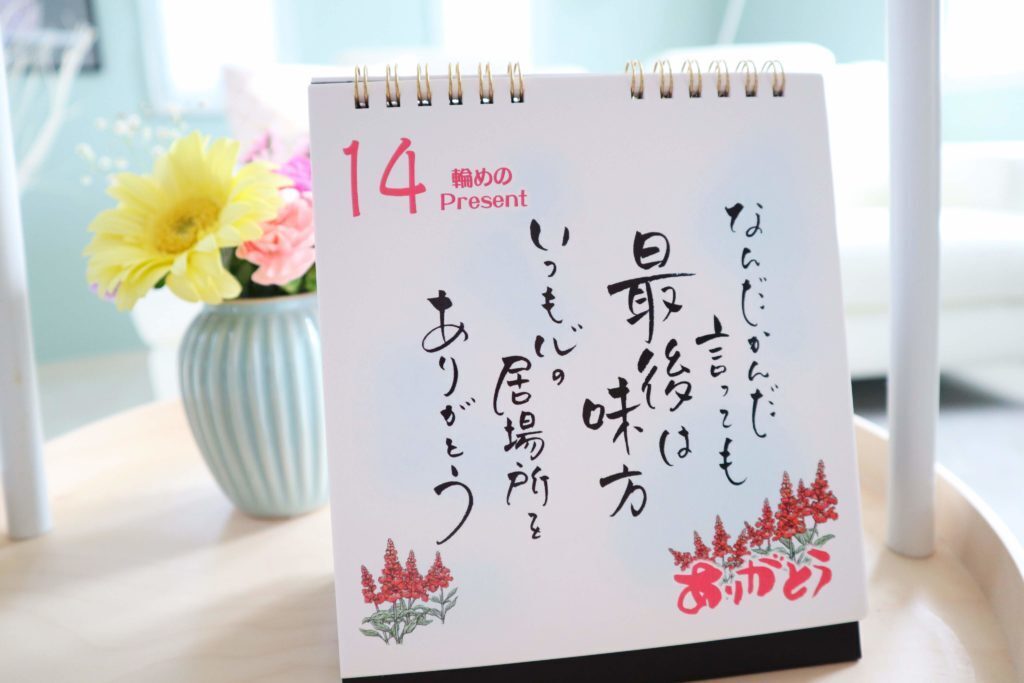 14
輪めの
Present
なんだかんだ
言っても
最後は
味方
いつも心の
居場所を
ありがとう
ありがとう